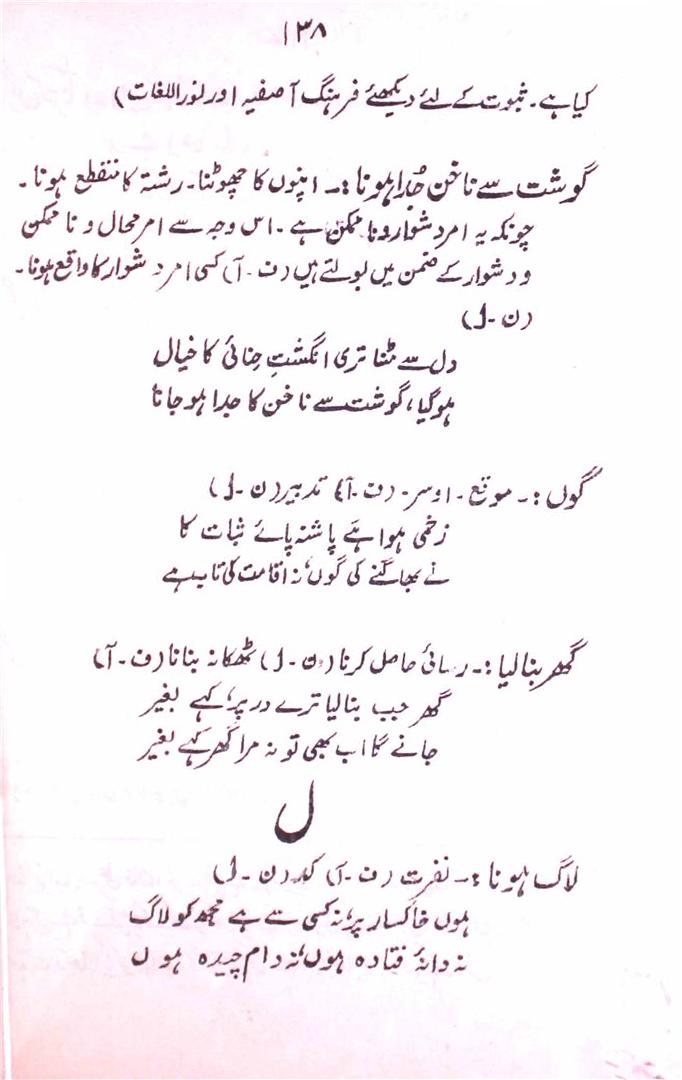 ۱۳۸
کیا ہے۔ ثبوت کے لئے دیکھئے فرہنگ آصفیہ اور نور اللغات)
گوشت سے ناخن جُدا ہونا :۔ اپنوں کا چھوٹنا۔ رشتہ کا منقطع ہونا۔
چونکہ یہ امر دشوار و نا ممکن ہے۔ اس وجہ سے امر محال و نا ممکن
و دشوار کے ضمن میں بولتے ہیں (ف۔آ) کسی امر دشوار کا واقع ہونا۔
(ن۔ل)
دل سے مٹنا تری انگشتِ حِنائی کا خیال
ہوگیا، گوشت سے ناخن کا جدا ہو جانا
گوں :۔ موقع۔ اوسر۔ (ف۔آ) تدبیر (ن۔ل)
زخمی ہوا ہے پاشنہ پائے ثبات کا
نے بھاگنے کی گوں، نہ اقامت کی تاب ہے
گھر بنا لیا :۔ رسائی حاصل کرنا (ن۔ل) ٹھکانہ بنانا (ف۔آ)
گھر جب بنا لیا ترے در پر، کہے بغیر
جانے گا اب بھی تو نہ مرا گھر کہے بغیر
ل
لاگ ہونا :۔ نفرت (ف۔آ) کد (ن۔ل)
ہوں خاکسار پر، نہ کسی سے ہے مجھ کو لاگ
نہ دانۂ فتادہ ہوں، نہ دام چیدہ ہوں